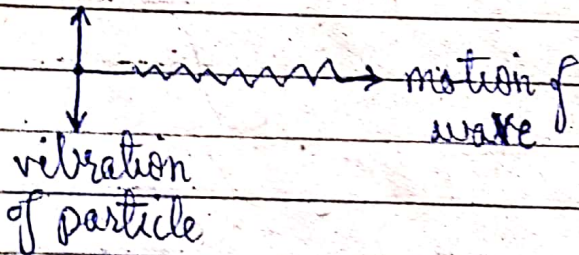 motion of
wave
vibration
of particle